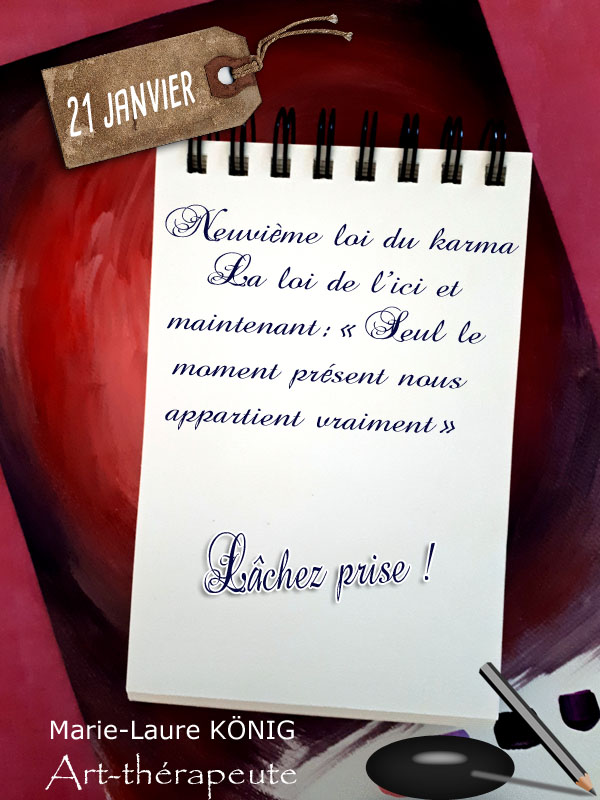 21 JANVIER
Neuvième loi du karma
La loi de l'ici et
maintenant : « Seul le
moment présent nous
appartient vraiment »
Lâchez prise !
Marie-Laure KÖNIG
Art-thérapeute